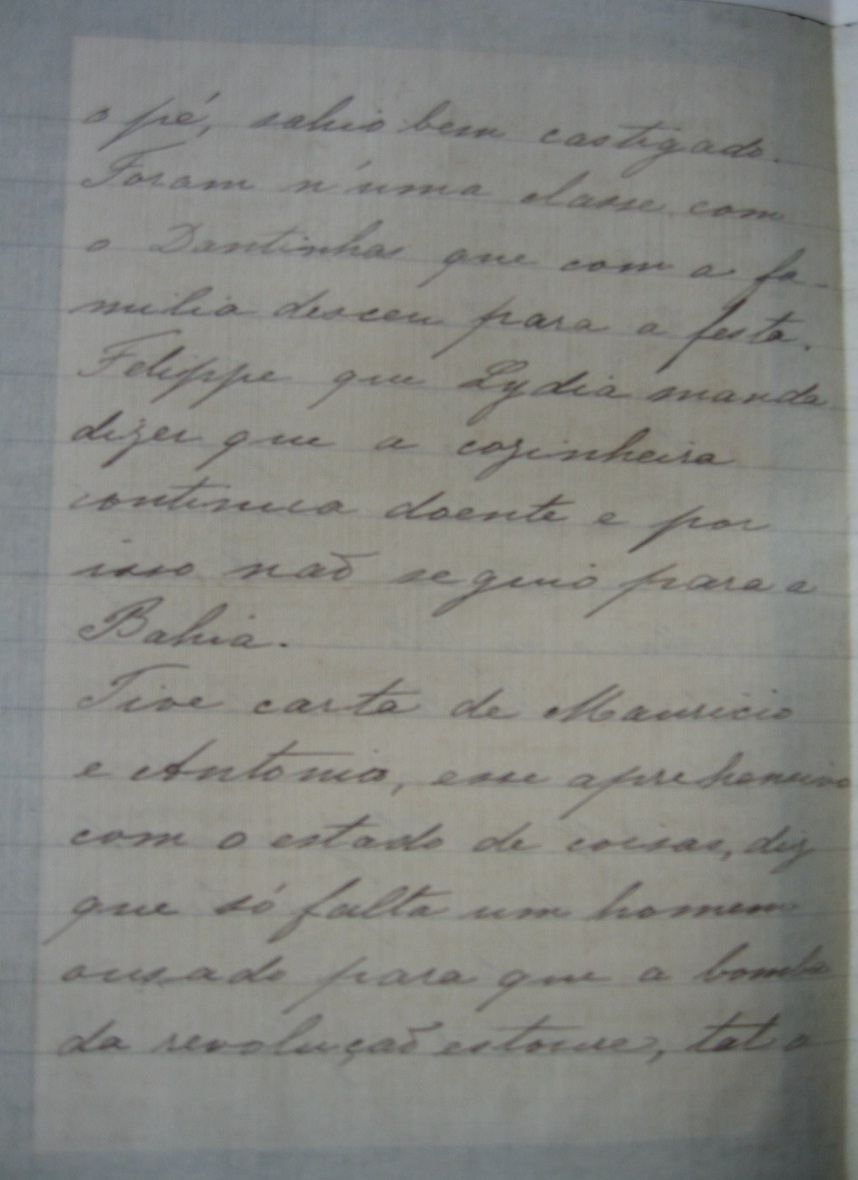 o pé, sahio bem castigado.
Foram n'uma classe com
o Dantinhas que com a fa-
milia desceu para a festa.
Felippe que Lydia manda
dizer que a cozinheira
continua doente e por
isso naõ seguio para a
Bahia.
Tive carta de Mauricio
e Antonio, esse aprehensivo
com o estado de coisas, diz
que só falta um homem
ousado para que a bomba
da revoluçaõ estoure, tal o